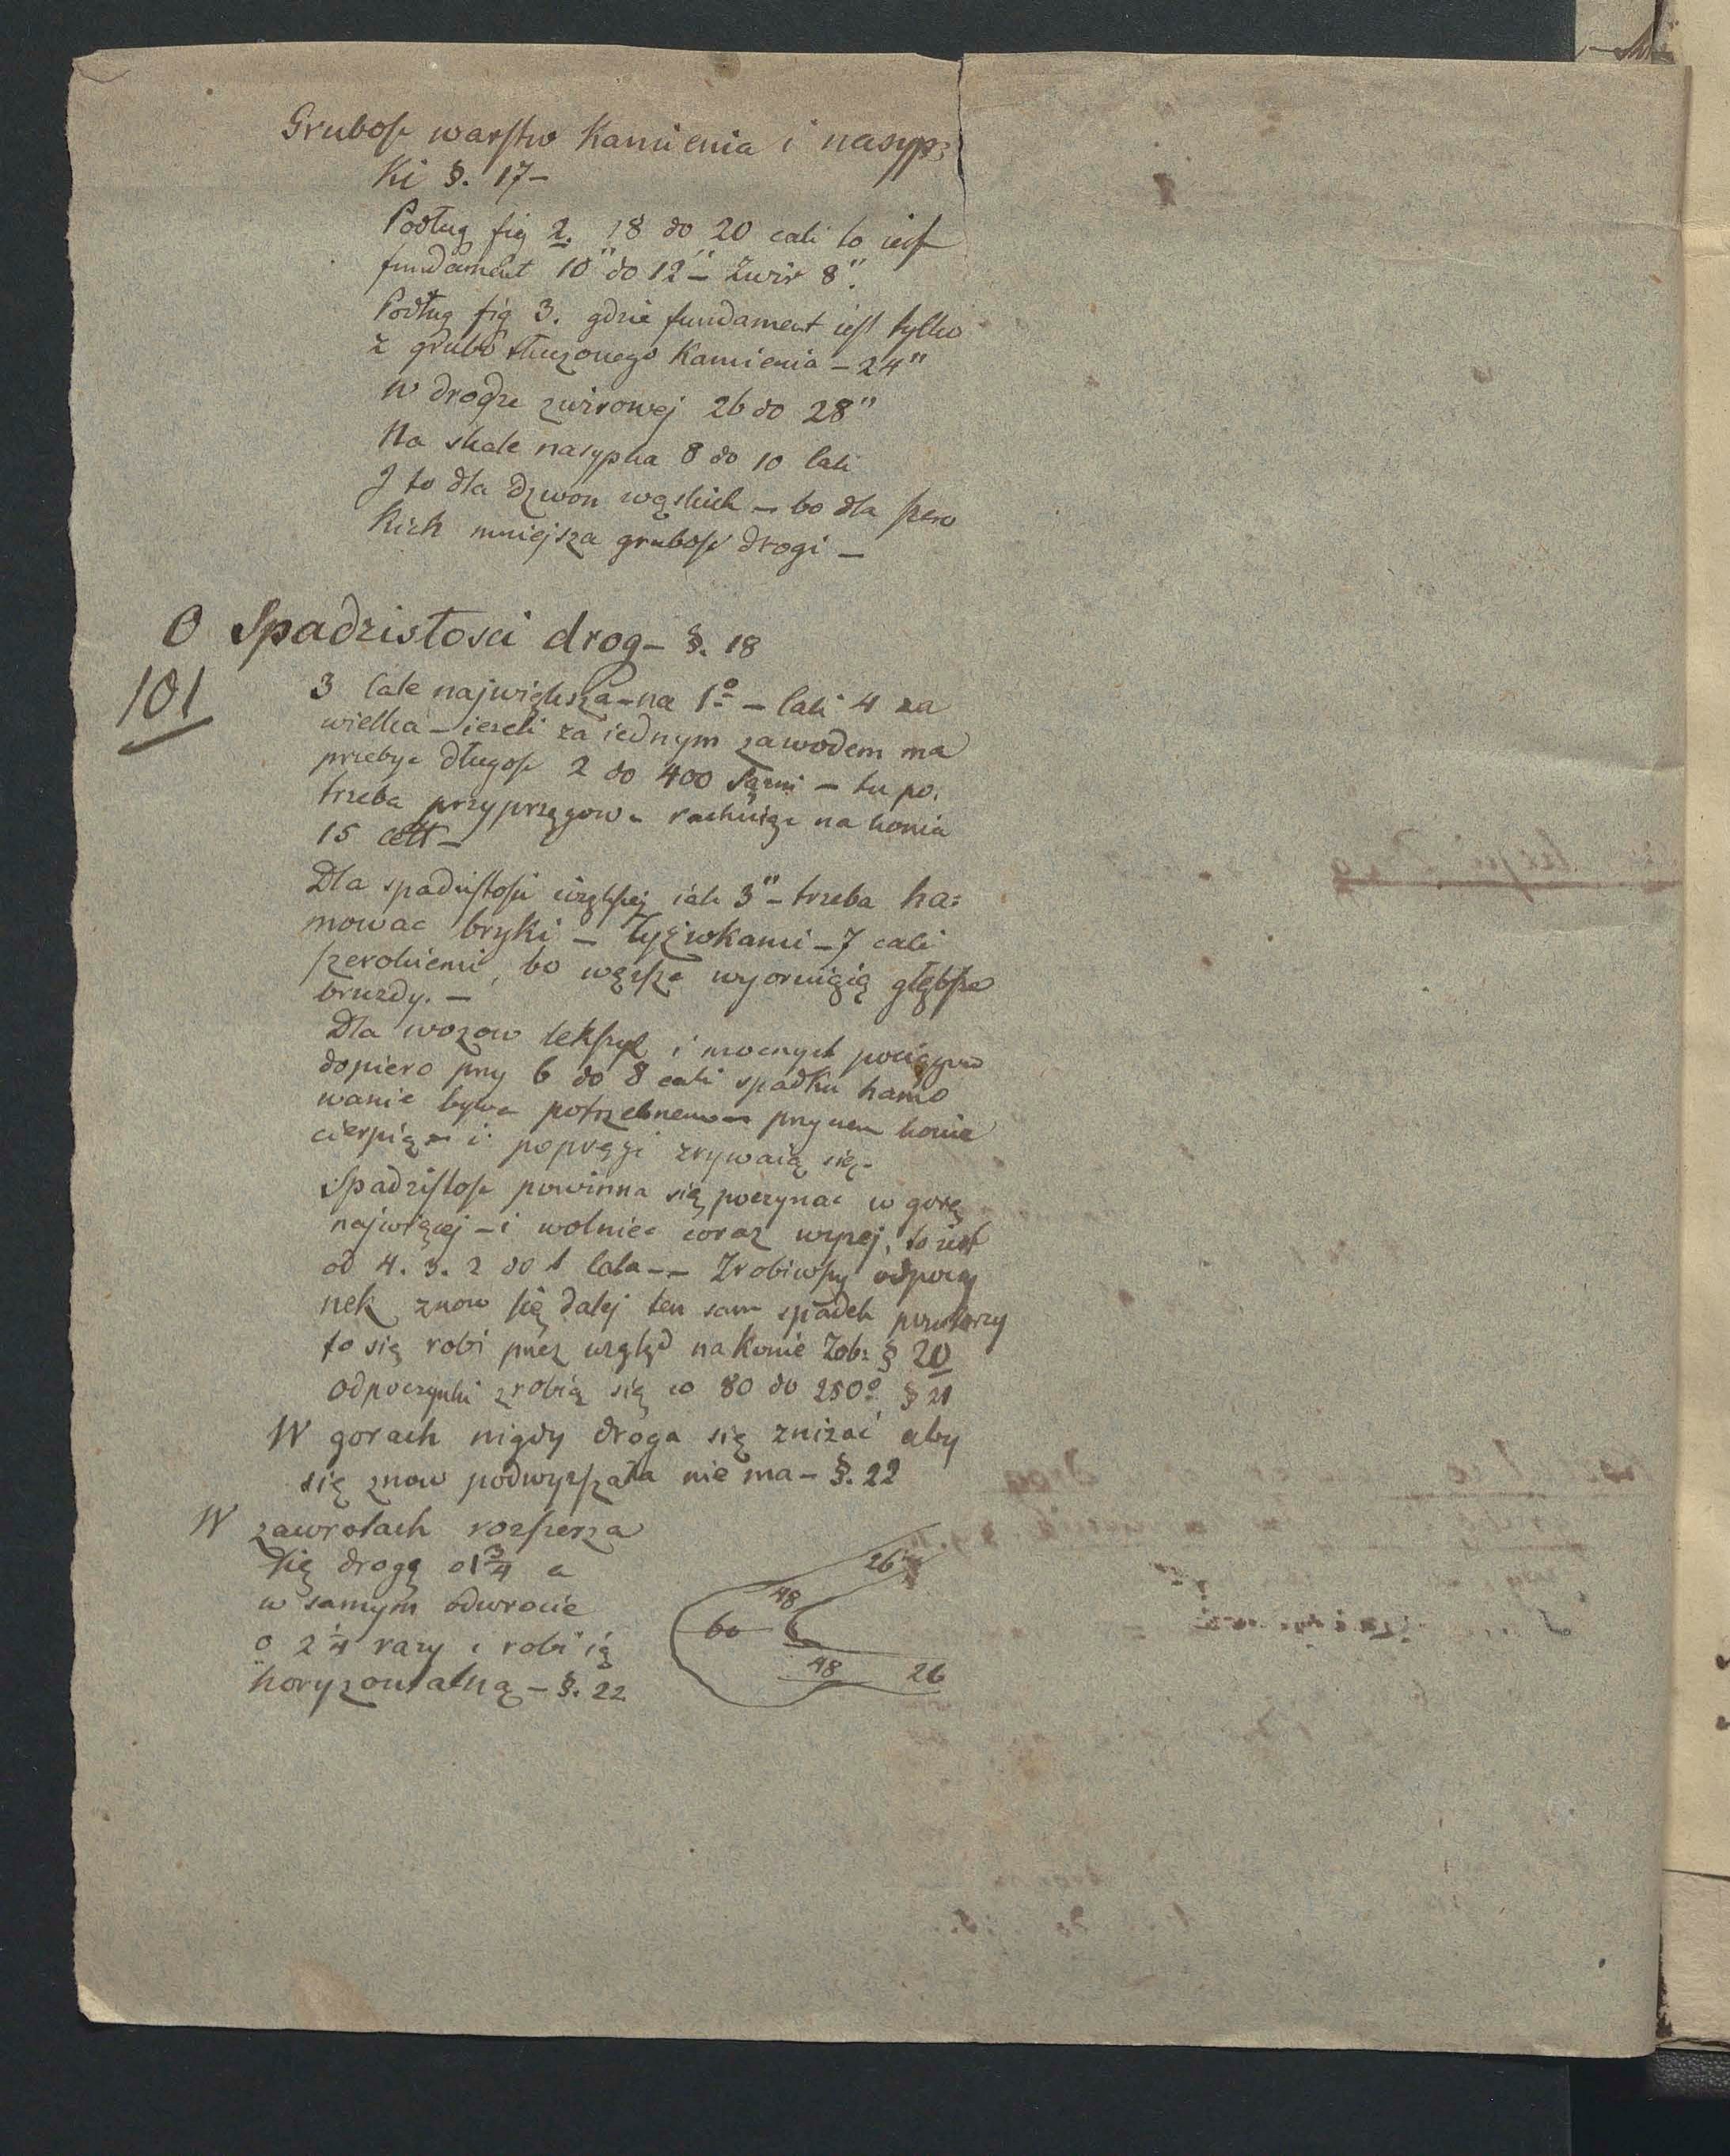 Grubosc warstw Kamienia i nasyp:
Ki §. 17-
Podług fig 2. 18 do 20 cali to iest
fundament 10" do 12" – Zwir 8".
Podług fig 3. gdzie fundament iest tylko
z grubo tłuczonego Kamienia – 24"
W drodze zwirowej 26 do 28"
Na skale nasypka 8 do 10 cali
I to dla dzwon wąskich – bo dla szero
kich mniejsza grubosc drogi –
O Spadzistosci drog – §. 18
101
3 cale największa – na 1º – cali 4 za
wielka – iezeli za iednym zawodem ma
przebyc długosc 2 do 400 Sązni – tu po.
trzeba przyprzęgow – rachuiąc na konia
15 cett –
Dla spadzistosci większej iak 3" – trzeba ha:
mowac bryki – łyżwkami – 7 cali
szerokiemi, bo węzsze wyoruiąią głębsze
bruzdy. –
Dla wozow lekszych i mocnych pociągow
dopiero przy 6 do 8 cali spadku hamo
wanie bywa potrzebnem – przy nem konie
cierpią – i popręgi zrywaią się –
Spadzistosc powinna się poczynac w gorę
najwięcej – i wolniec coraz wyzej, to iest
od 4. 3. 2 do 1 cala –– Zrobiwszy odpoczy
nek znow się dalej ten sam spadek powtorzy
to się robi przez wzgląd na Konie Zob: § 20
odpoczynki zrobią się co 80 do 250º § 21
W gorach nigdy droga się znizac aby
się znow podwyzszała nie ma – §. 22
W zawrotach rozszerza
się drogę o 1 3/4 a
w samym odwrocie
o 2 1/4 razy i robi ią
horyzontalną – §. 22
26
48
60
48 26